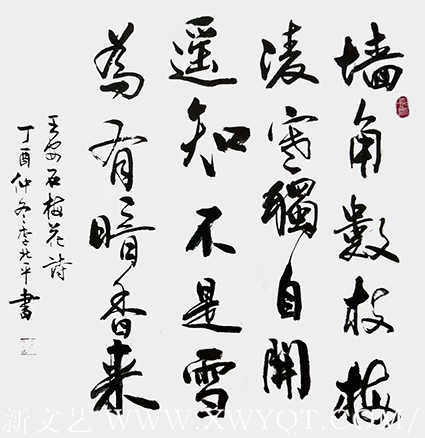 墙角數枝梅
凌寒獨自開
遥知不是雪
為有暗香来
王安石梅花詩
丁酉仲冬李北平書
新文艺 WWW.XWYQT.COM/